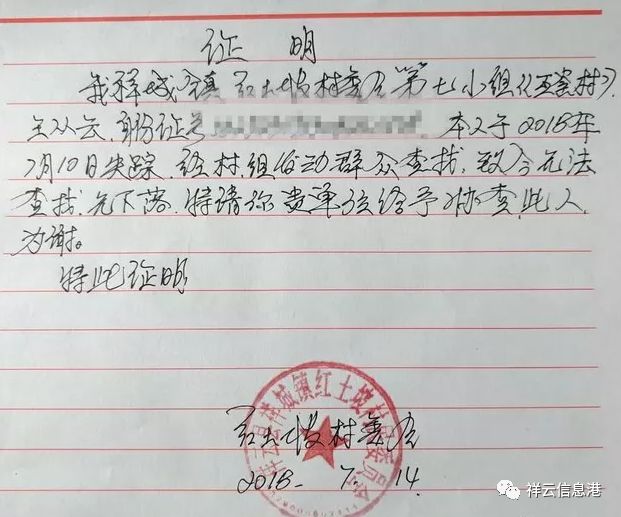 证 明
我祥城镇红土坡村委会第七小组(瓦窑村)
王从云,身份证号 本人于2018年
7月10日失踪,经村、组发动群众查找,致今无法
查找,无下落,特请你贵单位给予协查此人
为谢。
特此证明
祥云县祥城镇红土坡村民委员会
红土坡村委会
2018. 7. 14.
祥云信息港